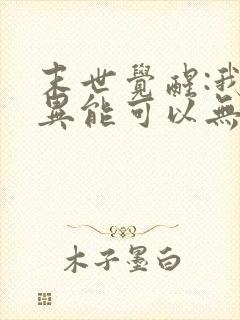 末世覺醒:我
異能可以無
木子墨白